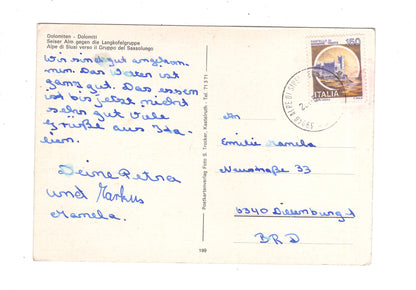 Dolomiten - Dolomiti
Seiser Alm gegen die Langkofelgruppe
Alpe di Siusi verso il Gruppo del Sassolungo
Wir sind gut angekom-
men. Das Wetter ist
ganz gut. Das essen
ist bis jetzt nicht
sehr gut viele
Grüße aus Ita-
lien.
Deine Petra
und Markus
Manela.
Postkartenverlag Foto S. Trocker, Kastelruth, Tel. 71371
199
150
ITALIA
39040
An
Emilie Manela
Neustraße 33
6340 Dillenburg 1
BRD